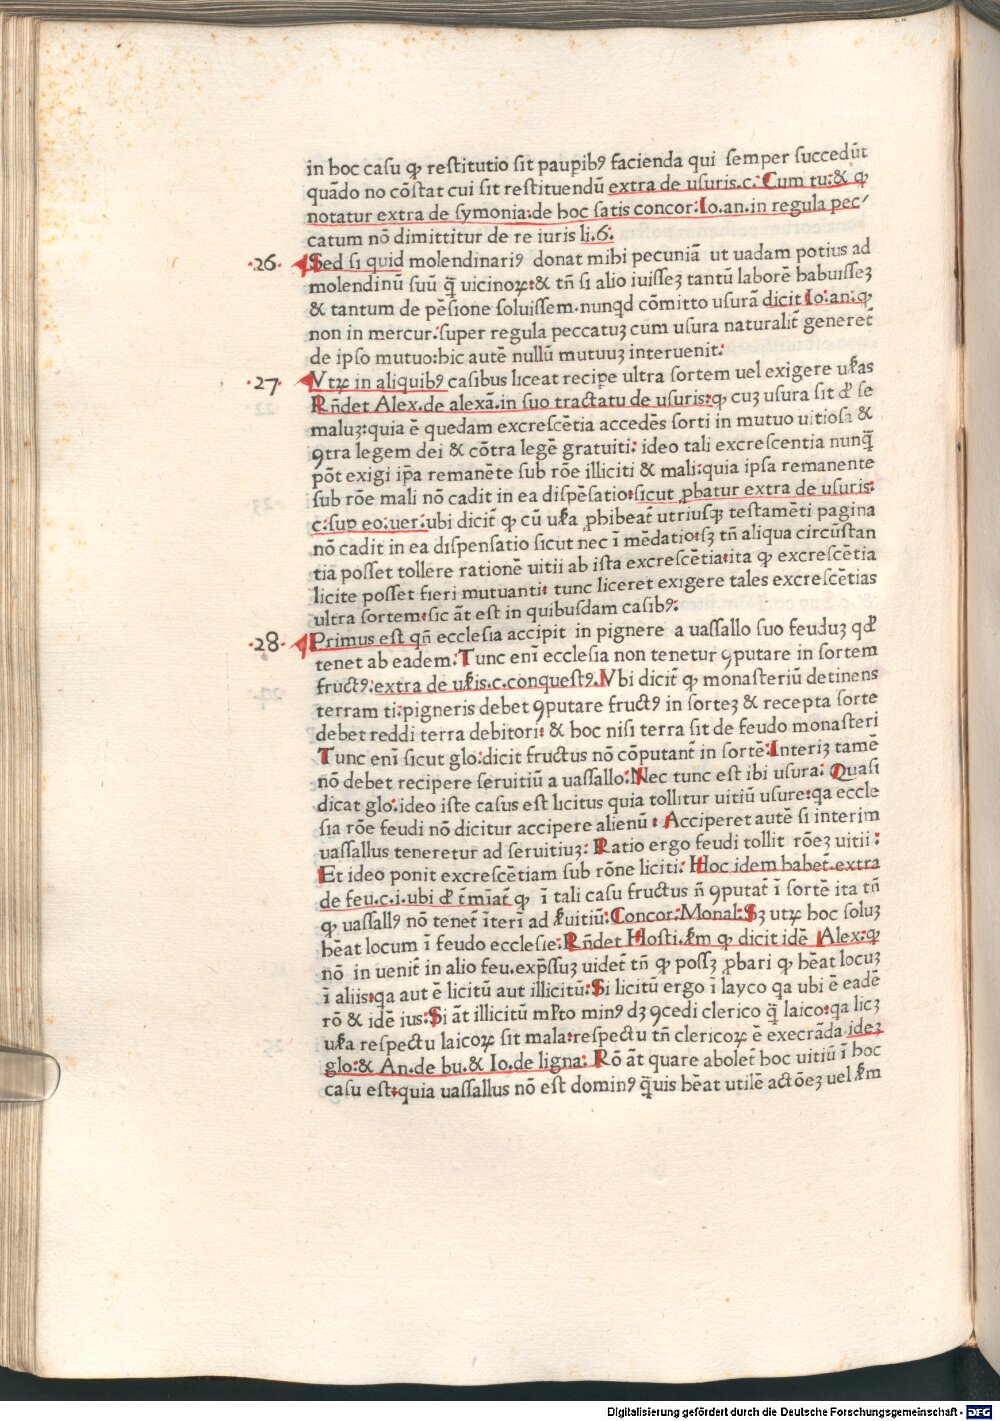 in hoc casu ꝙ restitutio sit paupib⁹ facienda qui semper succedūt
quādo no cōstat cui sit restituendū extra de usuris.c. Cum tu:& ꝙ
notatur extra de symonia:de hoc satis concor:Io.an.in regula pec⸗
catum nō dimittitur de re iuris li.6.
·26· Sed si quid molendinari⁹ donat mihi pecuniā ut uadam potius ad
molendinū suū q̄ uicinoꝝ:& tñ si alio iuissez tantū laborē habuissez
& tantum de pēsione soluissem.nunqd cōmitto usurā dicit Io:an:ꝙ
non in mercur:super regula peccatuz cum usura naturalit̄ generet̄
de ipso mutuo:hic autē nullū mutuuz interuenit:
·27· Vtꝝ in aliquib⁹ casibus liceat recipe ultra sortem uel exigere uẜas
Rñdet Alex.de alexā.in suo tractatu de usuris:ꝙ cuz usura sit đ se
maluz:quia ē quedam excrescētia accedēs sorti in mutuo uitiosa &
ꝯtra legem dei & cōtra legē gratuiti: ideo tali excrescentia nunq̄
pōt exigi ip̄a remanēte sub rōe illiciti & mali:quia ipsa remanente
sub rōe mali nō cadit in ea dispēsatio:sicut ꝓbatur extra de usuris:
c:sup eo:uer:ubi dicit̄ ꝙ cū uẜa ꝓhibeat̄ utriusqꝫ testamēti pagina
nō cadit in ea dispensatio sicut nec ī mēdatio:sꝫ tñ aliqua circūstan
tia posset tollere rationē uitii ab ista excrescētia:ita ꝙ excrescētia
licite posset fieri mutuanti: tunc liceret exigere tales excrescētias
ultra sortem:sic āt est in quibusdam casib⁹:
·28· Primus est qñ ecclesia accipit in pignere a uassallo suo feuduz qđ
tenet ab eadem:Tunc eni ecclesia non tenetur ꝯputare in sortem
fruct⁹:extra de uẜis.c.conquest⁹.Vbi dicit̄ ꝙ monasteriū detinens
terram ti:pigneris debet ꝯputare fruct⁹ in sortez & recepta sorte
debet reddi terra debitori: & hoc nisi terra sit de feudo monasteri
Tunc eni sicut glo:dicit fructus nō cōputant̄ in sortē:Interiz tamē
nō debet recipere seruitiū a uassallo:Nec tunc est ibi usura: Quasi
dicat glo:ideo iste casus est licitus quia tollitur uitiū usure:qa eccle
sia rōe feudi nō dicitur accipere alienū: Acciperet autē si interim
uassallus teneretur ad seruitiuz: Ratio ergo feudi tollit rōez uitii:
Et ideo ponit excrescētiam sub rōne liciti: Hoc idem habet̄.extra
de feu.c.i.ubi đ t̄miat̄ ꝙ ī tali casu fructus ñ ꝯputat̄ ī sortē ita tñ
ꝙ uassall⁹ nō tenet̄ īterī ad ẜuitiū:Concor:Monal:Sꝫ utꝝ hoc soluz
hēat locum ī feudo ecclesie:Rñdet Hosti.ẜm ꝙ dicit idē Alex:ꝙ
nō in uenit̄ in alio feu.exp̄ssuz uidet̄ tñ ꝙ possꝫ ꝓbari ꝙ hēat locuz
ī aliis:qa aut ē licitū aut illicitū:Si licitū ergo ī layco qa ubi ē eadē
rō & idē ius:Si āt illicitū mꝉto min⁹ dꝫ ꝯcedi clerico q̄ laico:qa licꝫ
uẜa respectu laicoꝝ sit mala:respectu tñ clericoꝝ ē execrāda idez
glo:& An.de bu.& Io.de ligna: Rō āt quare abolet̄ hoc uitiū ī hoc
casu est:quia uassallus nō est domin⁹ q̄uis hēat utilē actōez uel ẜm
Digitalisierung gefördert durch die Deutsche Forschungsgemeinschaft - DFG